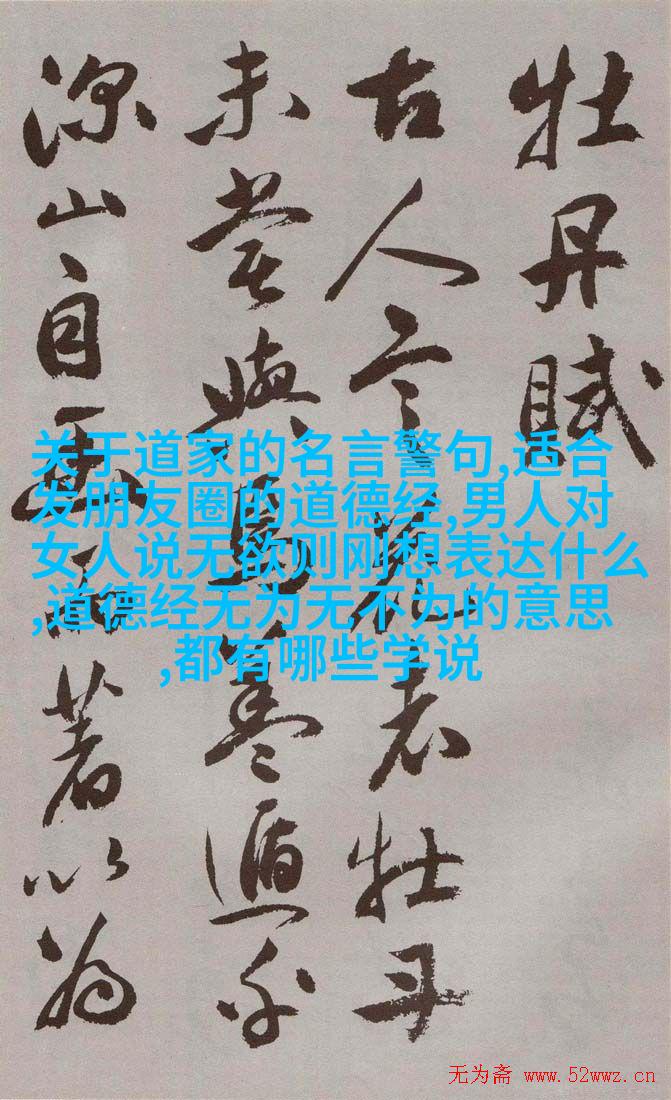 牡丹賦
古人言花者牡丹
未嘗與焉蓋遁乎
深山自幽而著以為
关于道家的名言警句,适合
发朋友圈的道德经,男人对
女人说无欲则刚想表达什么
,道德经无为无不为的意思
,都有哪些学说
无为斋 www.52wwz.cn